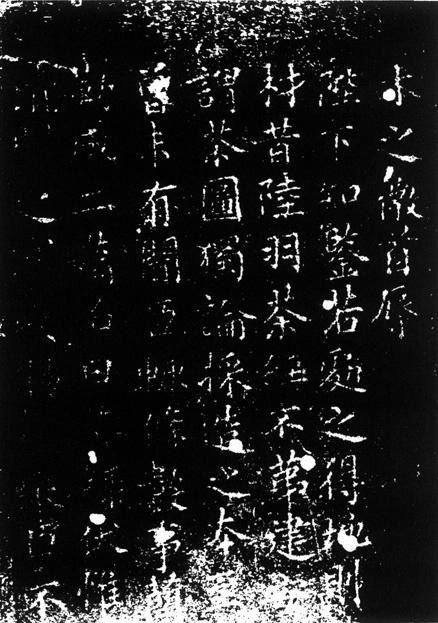 木之微首辱
陛下知鑒若處之得地則
材昔陸羽茶經不第建安
謂茶圖獨論採造之本至
曾未有聞臣輒條數事簡
勒成二篇名曰 伏惟
之 臣不